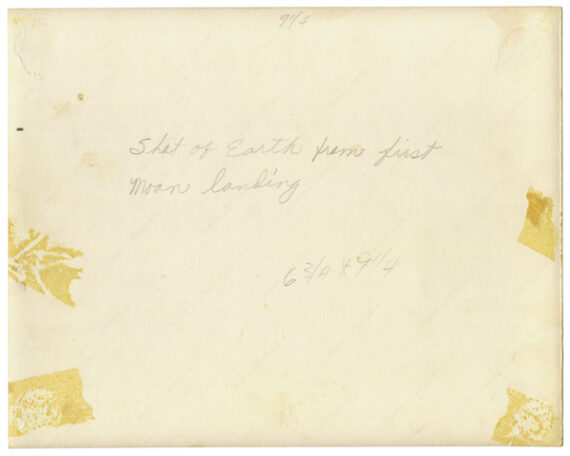 9 1/4
Shot of Earth from first
Moon landing
6 3/4 x 9 1/4